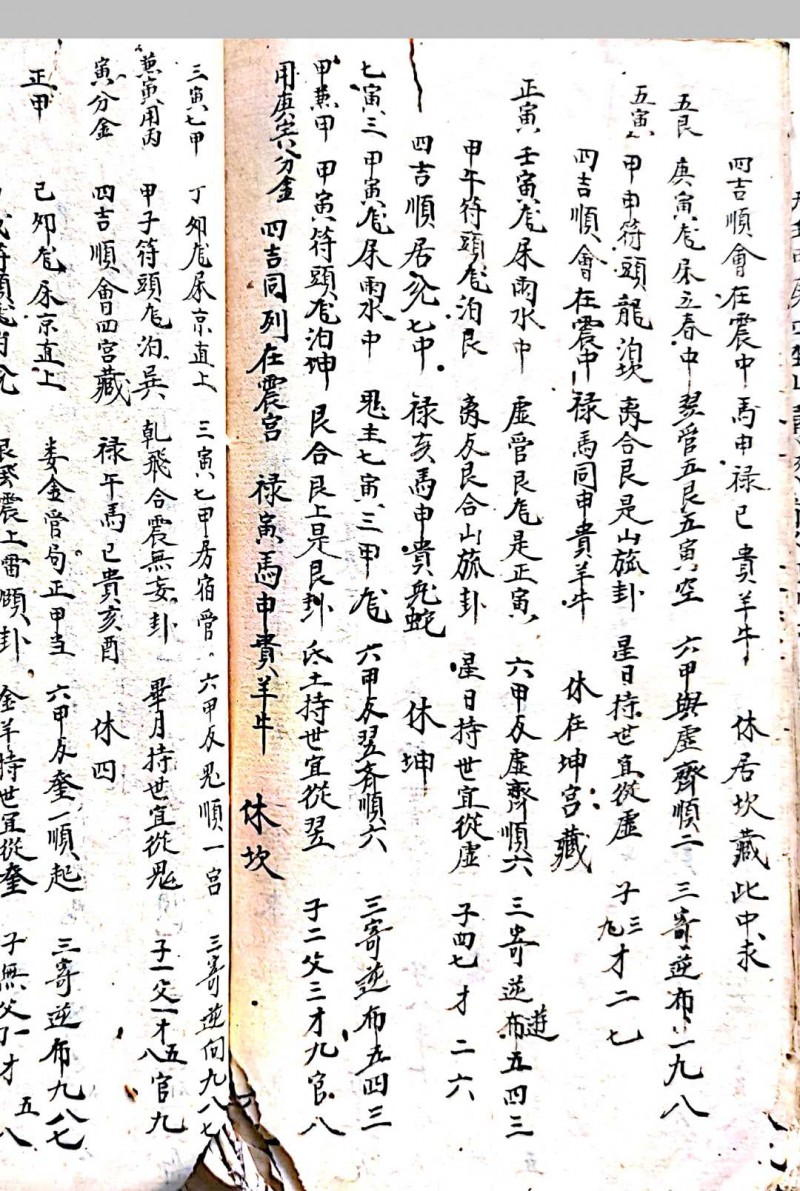 四吉順會在震中 馬申祿已 貴羊牛 休居坎藏此中求
五艮 庚寅尨尿立春中 翌管五艮五寅空 六甲與虛齊順二 三寄逆布一九八
五寅 甲申符頭龍泊坎 离合艮是山旅卦 星日持世宜從虛 子三九才二七
四吉順會在震中 祿馬同申貴羊牛 休在坤宮藏
正寅 壬寅尨尿雨水中 虛管艮尨是正寅 六甲反虛齊順六 三寄逆布五四三
甲午符頭尨泊艮 离反艮合山旅卦 星日持世宜從虛 子四七才二六
四吉順居兊七中 祿亥馬申貴兎蛇 休坤
七寅三 甲寅尨尿雨水中 鬼主七寅三甲尨 六甲反翌齐順六 三寄逆布五四三
甲兼甲 甲寅符頭尨泊坤 艮合艮上是艮卦 氐土持世宜從翌 子二父三才九官八
用庚寅分金 四吉同列在震宮 祿寅馬申貴羊牛 休坎
三寅七甲 丁夘尨尿京直上 三寅七甲房宿管 六甲反鬼順一宮 三寄逆向九八七
兼寅用丙 甲子符頭尨泊巽 乹飛合震無妄卦 畢月持世宜從鬼 子一父一才五八官九
寅分金 四吉順會四宮藏 祿午馬已貴亥酉 休四
正甲 己夘尨尿京直上 娄金管局正甲当 六甲反奎一順起 三寄逆布九八七
符頭尨泊兊 震上雷頤卦 金羊持世宜從奎 子無父一才五八